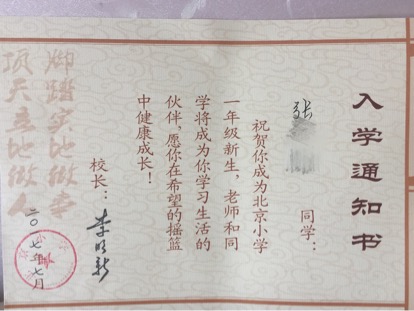 入学通知书
张
同学：
祝贺你成为北京小学
一年级新生，老师和同
学将成为你学习生活的
伙伴，愿你在希望的摇篮
中健康成长！
校长：李明新
二〇一七年七月
脚踏实地做事
顶天立地做人